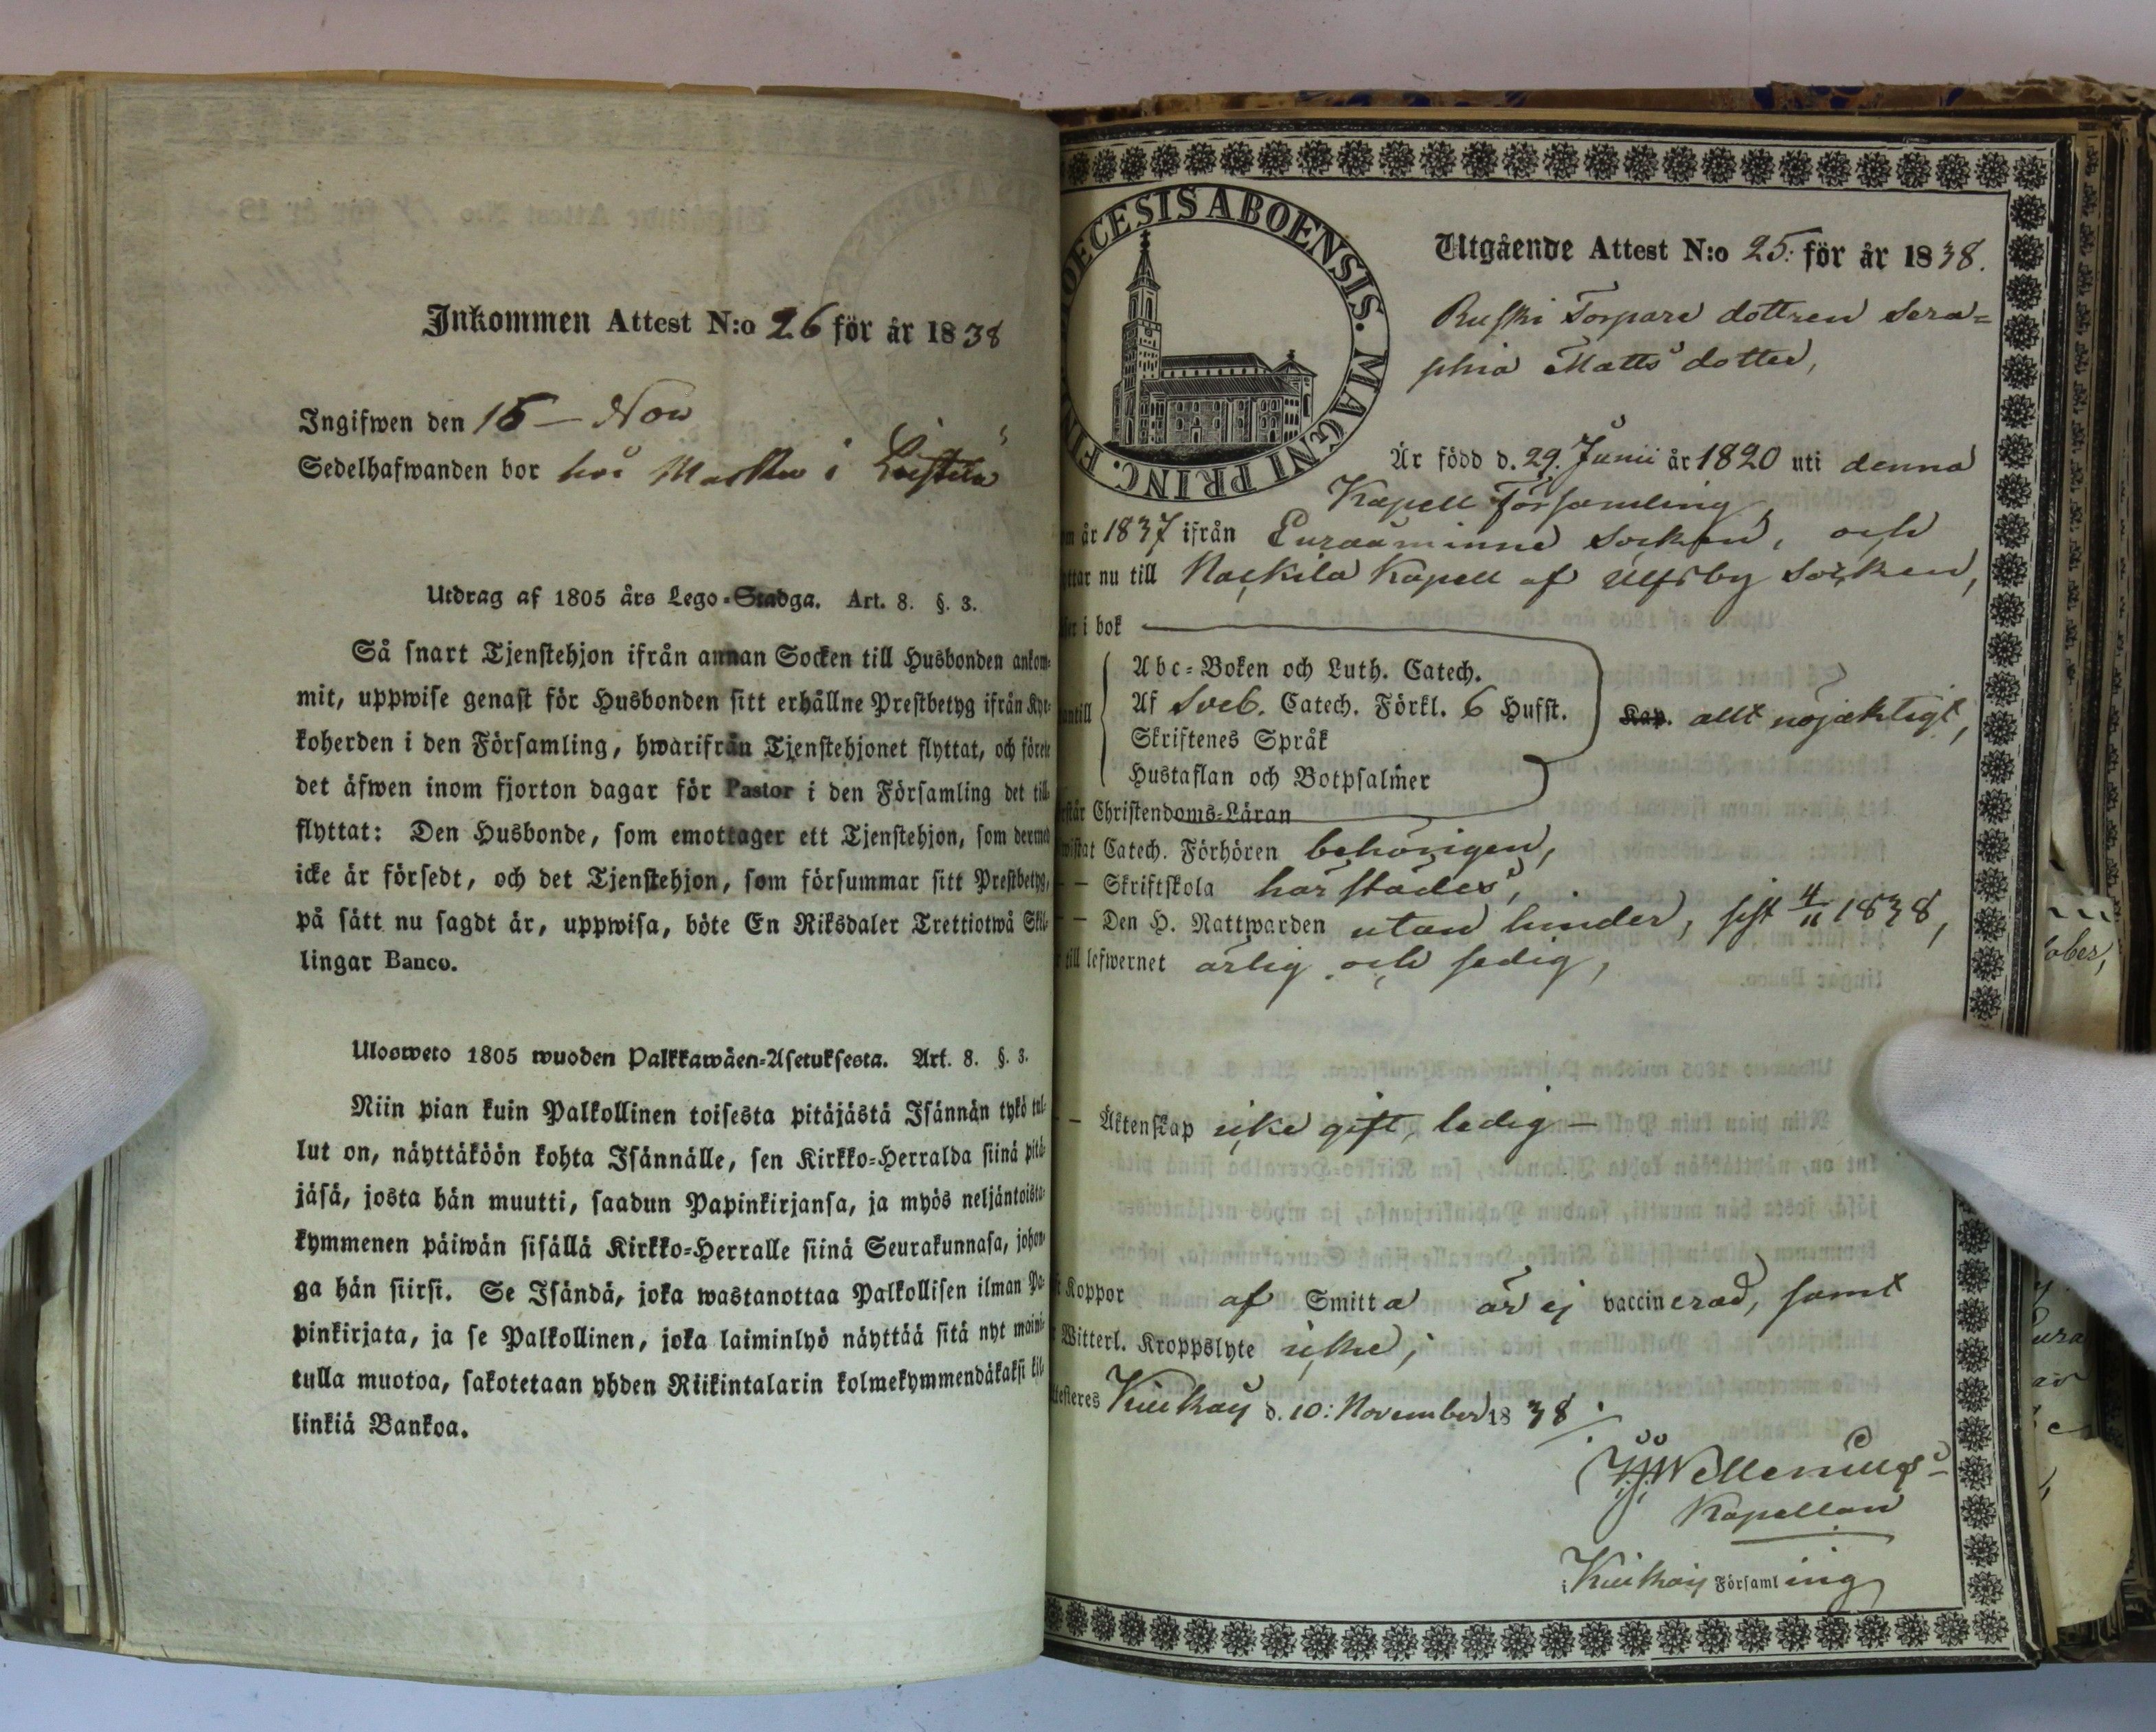 Inkommen Attest N:o 26 för år 1838
Ingifwen den 15 – Nov
Sedelhafwanden bor hos i
Utdrag af 1805 års Lego-Stadga. Art. 8. §. 3.
Så snart Tjenstehjon ifrån annan Socken till Husbonden ankom-
mit, uppwise genast för Husbonden sitt erhållne Prestbetyg ifrån Kyr-
koherden i den Församling, hwarifrån Tjenstehjonet flyttat, och förete
det äfwen inom fjorton dagar för Pastor i den Församling det till-
flyttat: Den Husbonde, som emottager ett Tjenstehjon, som dermed
icke är försedt, och det Tjenstehjon, som försummar sitt Prestbetyg,
på sätt nu sagdt är, uppwisa, böte En Riksdaler Trettiotwå Skil-
lingar Banco.
Ulosweto 1805 wuoden Palkkawäen-Asetuksesta. Art. 8. §. 3.
Niin pian kuin Palkollinen toisesta pitäjästä Isännän tykö tul-
lut on, näyttäköön kohta Isännälle, sen Kirkko-Herralda siinä pitä-
jäsä, josta hän muutti, saadun Papinkirjansa, ja myös neljäntoista-
kymmenen päiwän sisällä Kirkko-Herralle siinä Seurakunnasa, johon-
ga hän siirsi. Se Isändä, joka wastanottaa Palkollisen ilman Pa-
pinkirjata, ja se Palkollinen, joka laiminlyö näyttää sitä nyt maini-
tulla muotoa, sakotetaan yhden Riikintalarin kolmekymmendäkaksi kil-
linkiä Bankoa.
DIOECESIS ABOENSIS. MAGNI PRINC. FIN
Utgående Attest N:o 25. för år 1838.
Ruski Torpare dottren Sera=
phia Matts dotter,
Är född d. 29. Junii år 1820 uti denna
Kapell Församling,
år 1837 ifrån Euraåminne Socken, och
nu till Nackila Kapell af Ulfsby Socken,
i bok
Abc-Boken och Luth. Catech.
Af Sveb. Catech. Förkl. 6 Hufst. Kap. allt nöjaktigt,
Skriftenes Språk
Hustaflan och Botpsalmer
Christendoms-Läran
Catech. Förhören behörigen,
— Skriftskola härstädes,
— Den H. Nattwarden utan hinder, sist 4/11 1838,
till lefwernet ärlig och sedig,
— Äktenskap icke gift, ledig –
Koppor af Smitta är ej vaccinerad, samt
Witterl. Kroppslyte icke;
Kiukais d. 10: November 1838
Wellenius
Kapellan
i Kiukais Församling